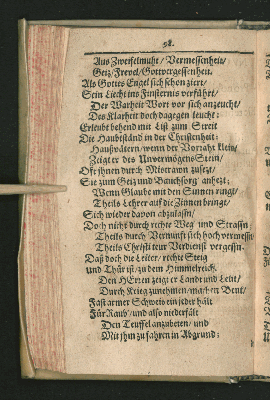 98.
Aus Zweifelmuht / Vermessenheit /
Geiz / Frevel / Gottvergessenheit.
Als Gottes Engel sich schon ziert /
Sein Liecht ins Finsternis verführt /
Der Warheit Wort vor sich anzeucht /
Des Klarheit doch dagegen leucht:
Erleubt behend mit List zum Streit
Die Haubtständ in der Christenheit:
Hausvätern / wenn der Vorraht klein /
Zeigt er des Unvermögens Stein /
Oft ihnen durch Mistrawn zusezt /
Sie zum Geiz und Bauchsorg anhezt;
Wenn Glaube mit den Sinnen ringt /
Theils Lehrer auf die Zinnen bringt /
Sich wieder davon abzulassn /
Doch nicht durch rechte Weg und Strassn
Theils durch Vernunft sich hoch vermessn
Theils Christi teur Verdienst vergessn.
Daß doch die Leiter / rechte Steig
und Thür ist / zu dem Himmelreich.
Den HErren zeigt er Land und Leut /
Durch Krieg zunehmen / machen Beut /
Fast armer Schweis ein jeder hält
Für Raub / und also niederfält
Den Teuffel anzubeten / und
Mit ihm zu fahren in Abgrund: